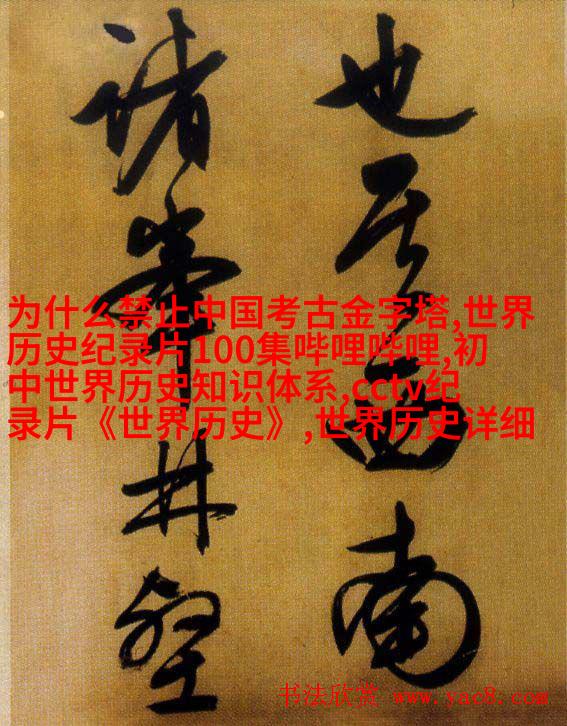 也其西南
諸峯林壑
为什么禁止中国考古金字塔,世界
历史纪录片100集哔哩哔哩,初
中世界历史知识体系,cctv纪
录片《世界历史》,世界历史详细
书法欣赏 www.yac8.com